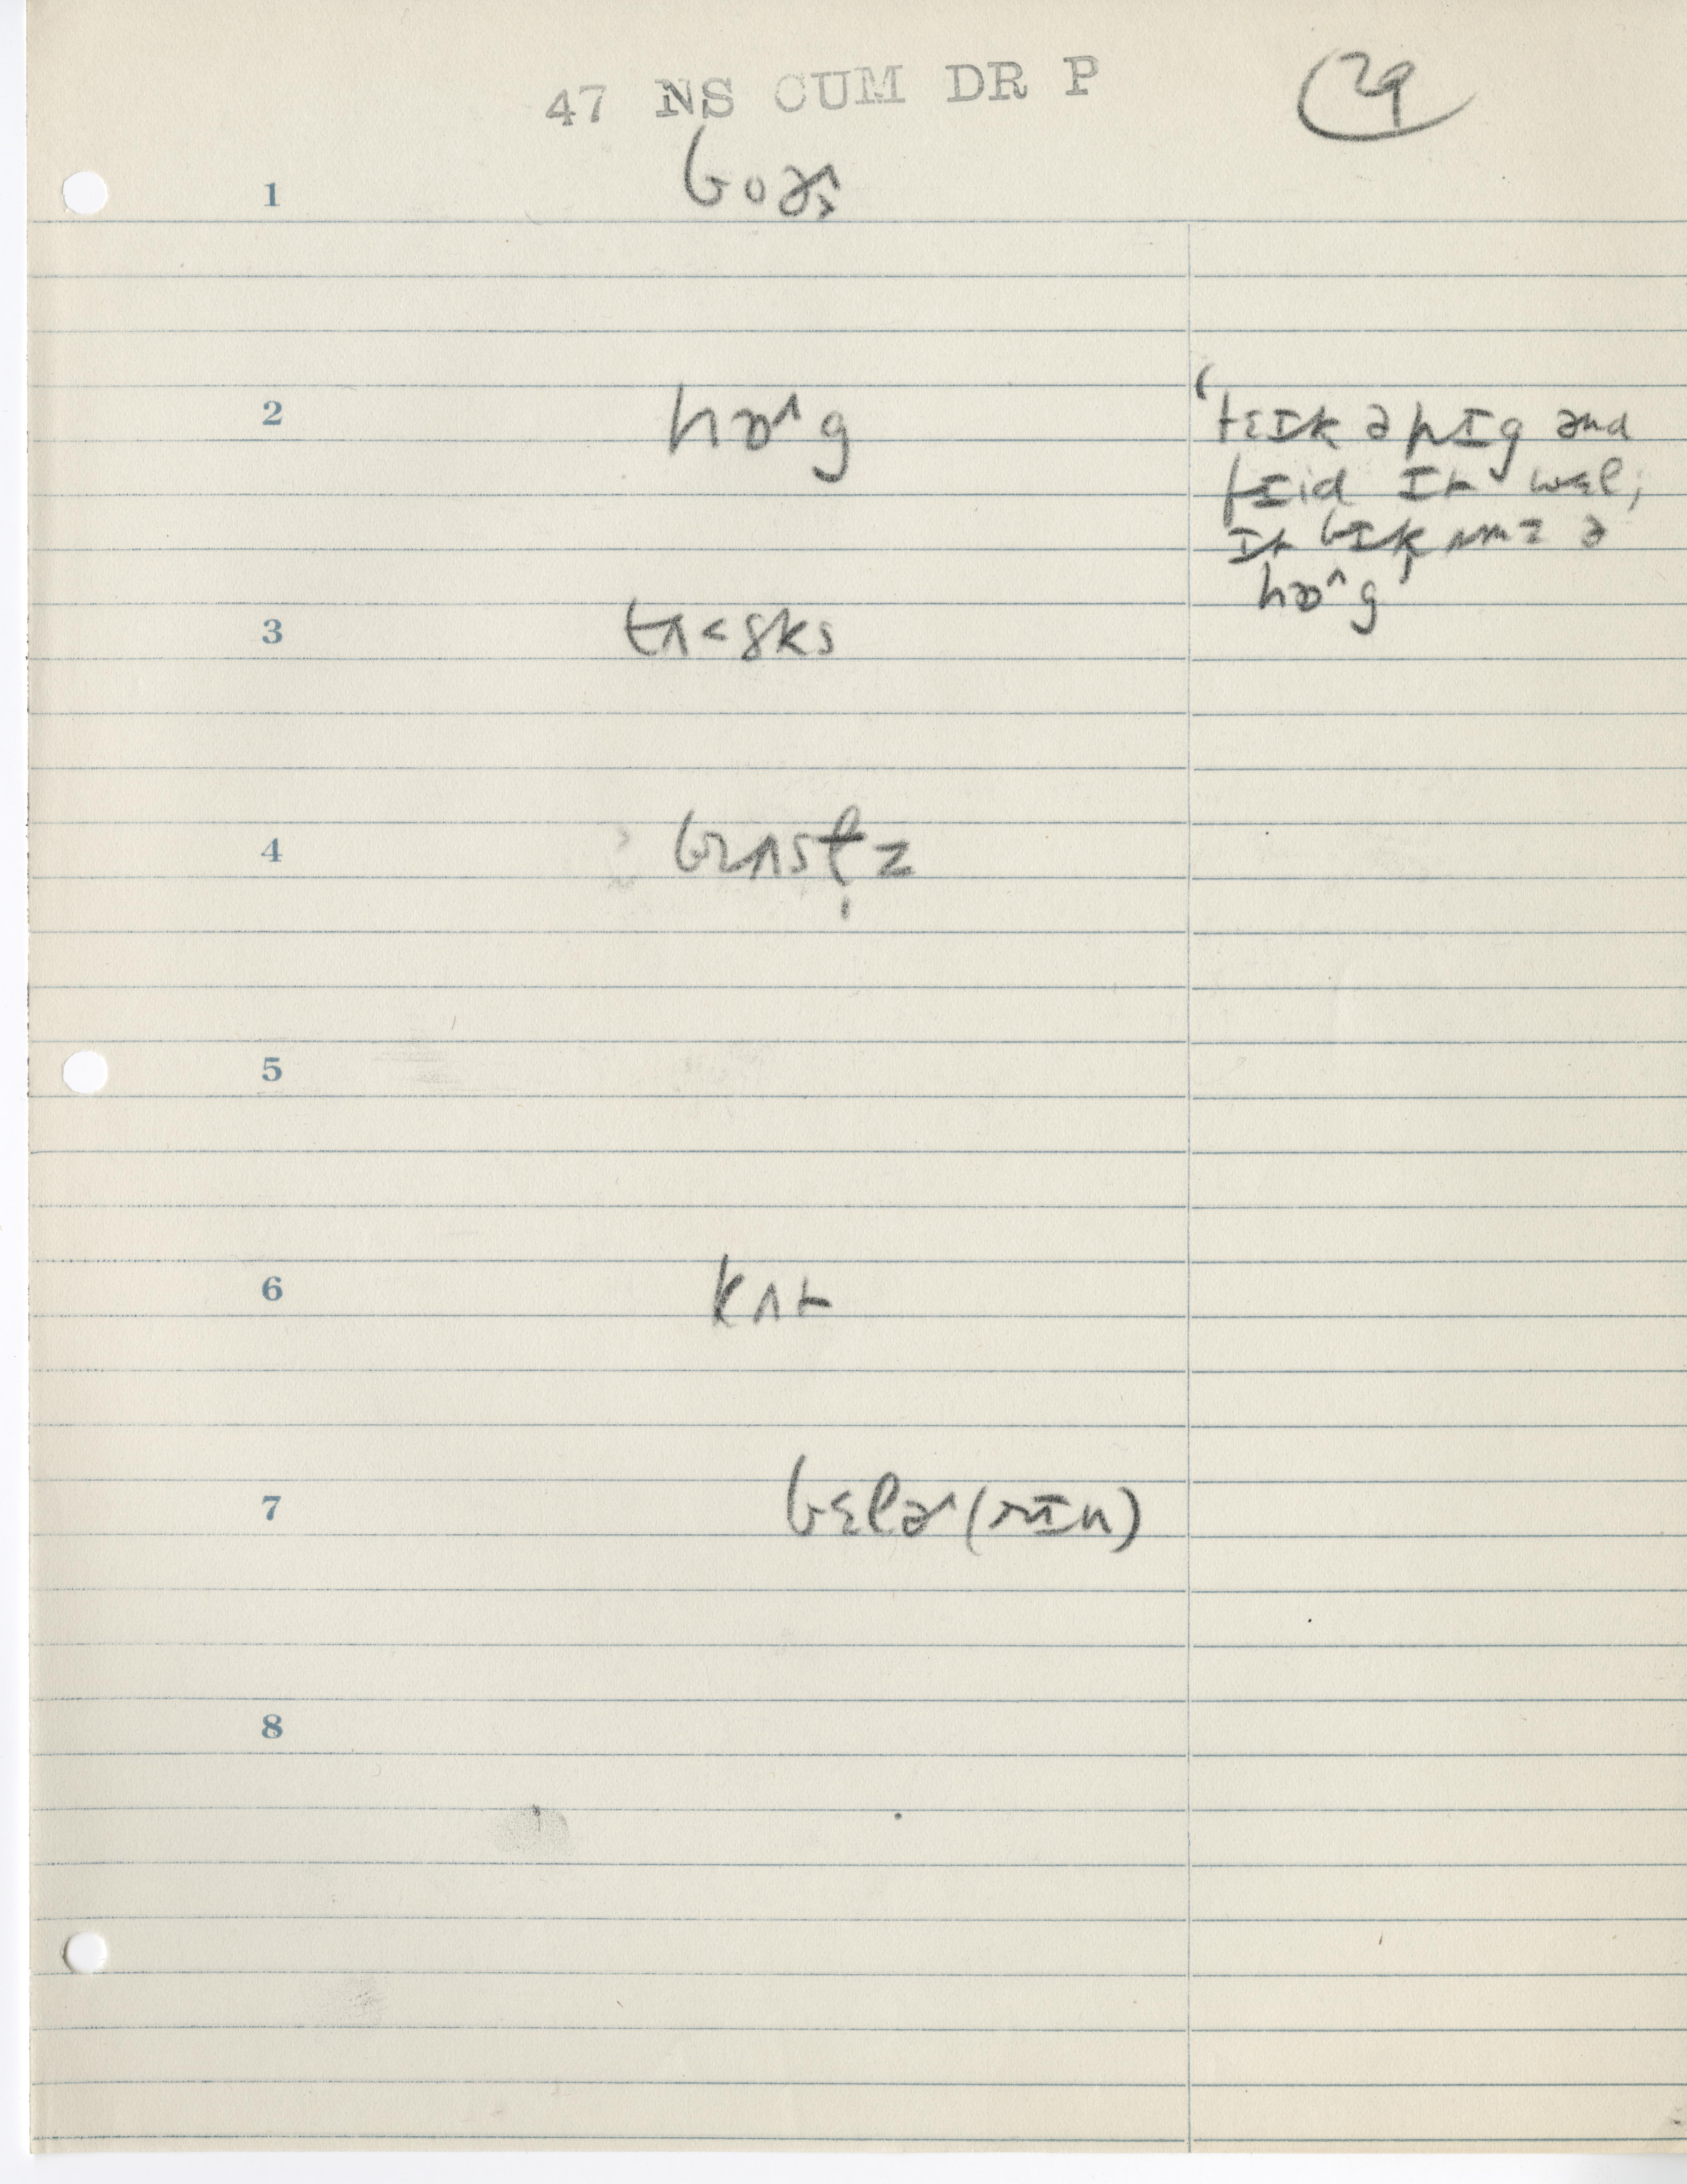 47 NS CUM DR P
29
1
2 hɒ^g
'tɛɪk ə pɪg ənd
fɪid ɪt wɛl;
ɪt bɪkʌmz ə
hɒ^g'
3 tʌ<sks
4 brʌsl̩z
5
6 kʌt
7 bɛlɚ (rɪn)
8